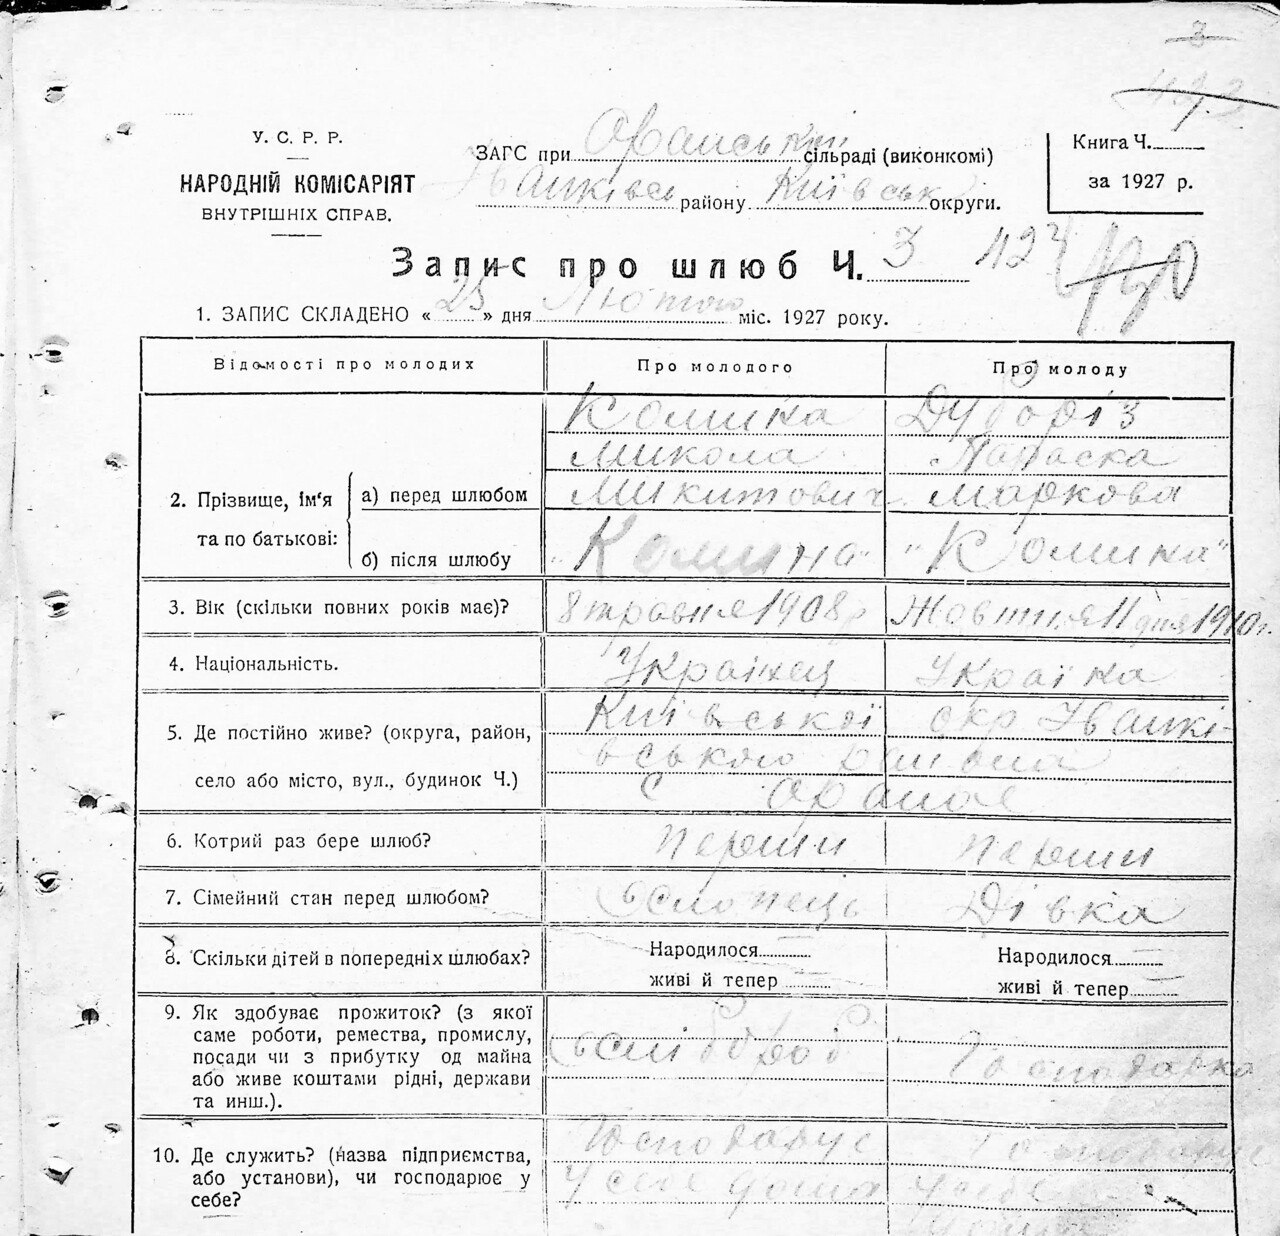 3
423
У. С. Р. Р.
НАРОДНІЙ КОМІСАРІЯТ
ВНУТРІШНІХ СПРАВ.
ЗАГС при Ораиський сільраді (виконкомі)
Іванківсь району Київськ округи.
Книга Ч.
за 1927 р.
Запис про шлюб Ч. 3
424
420
1. ЗАПИС СКЛАДЕНО « 25 » дня Лютого міс. 1927 року.
Відомості про молодих Про молодого Про молоду
2. Прізвище, ім'я та по батькові:
а) перед шлюбом
Комина Дуборіз
Микола Параска
Микитович Маркова
б) після шлюбу "Комина" "Комина"
3. Вік (скільки повних років має)? 8 травня 1908 р Жовтня 11 дня 1910 г.
4. Національність. Українец Українка
5. Де постійно живе? (округа, район,
село або місто, вул., будинок Ч.)
Київської окр Іванкі-
вського района
с Ораное
6. Котрий раз бере шлюб? перши перши
7. Сімейний стан перед шлюбом? Дівка
8. Скільки дітей в попередніх шлюбах? Народилося Народилося
живі й тепер живі й тепер
9. Як здобуває прожиток? (з якої
саме роботи, ремества, промислу,
посади чи з прибутку од майна
або живе коштами рідні, держави
та инш.).
Господарка
10. Де служить? (Назва підприємства,
або установи), чи господарює у
себе?
Господарує Господарує
У себе дома У себе